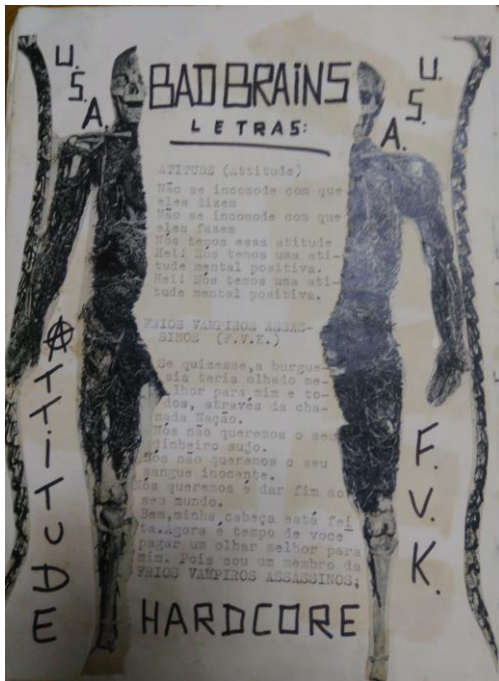 U.S.A.
BAD BRAINS
U.S.A.
LETRAS:
ATITUDE (Attitude)
Não se incomode com que
eles dizem
Não se incomode com que
eles fazem
Nós temos essa atitude
Hei! Nós temos uma ati-
tude mental positiva.
Hei! Nós temos uma ati-
tude mental positiva.
FRIOS VAMPIROS ASSAS-
SINOS (F.V.K.)
Se quizesse,a burgue-
sia teria olhado me-
lhor para mim e to-
dos, através da cha-
mada Nação.
Nós não queremos o seu
dinheiro sujo.
Nós não queremos o seu
sangue inocente.
Nós queremos é dar fim ao
seu mundo.
Bem,minha cabeça está fei
ta.Agora é tempo de voce
pagar um olhar melhor para
mim. Pois sou um membro da
FRIOS VAMPIROS ASSASSINOS;
ATTITUDE
F.V.K.
HARDCORE